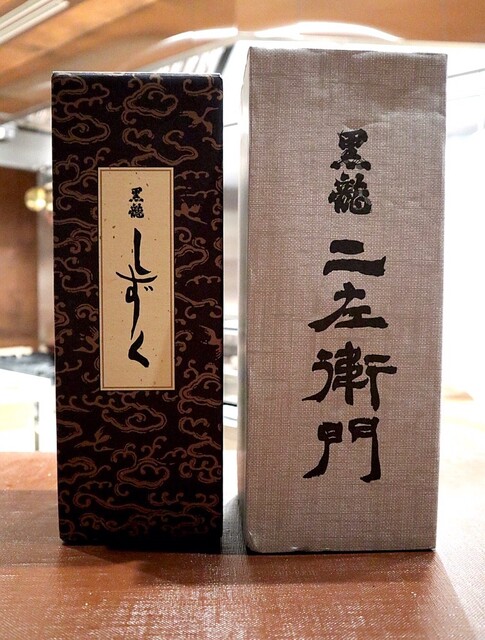 黒龍
しずく
黒龍
二左衛門